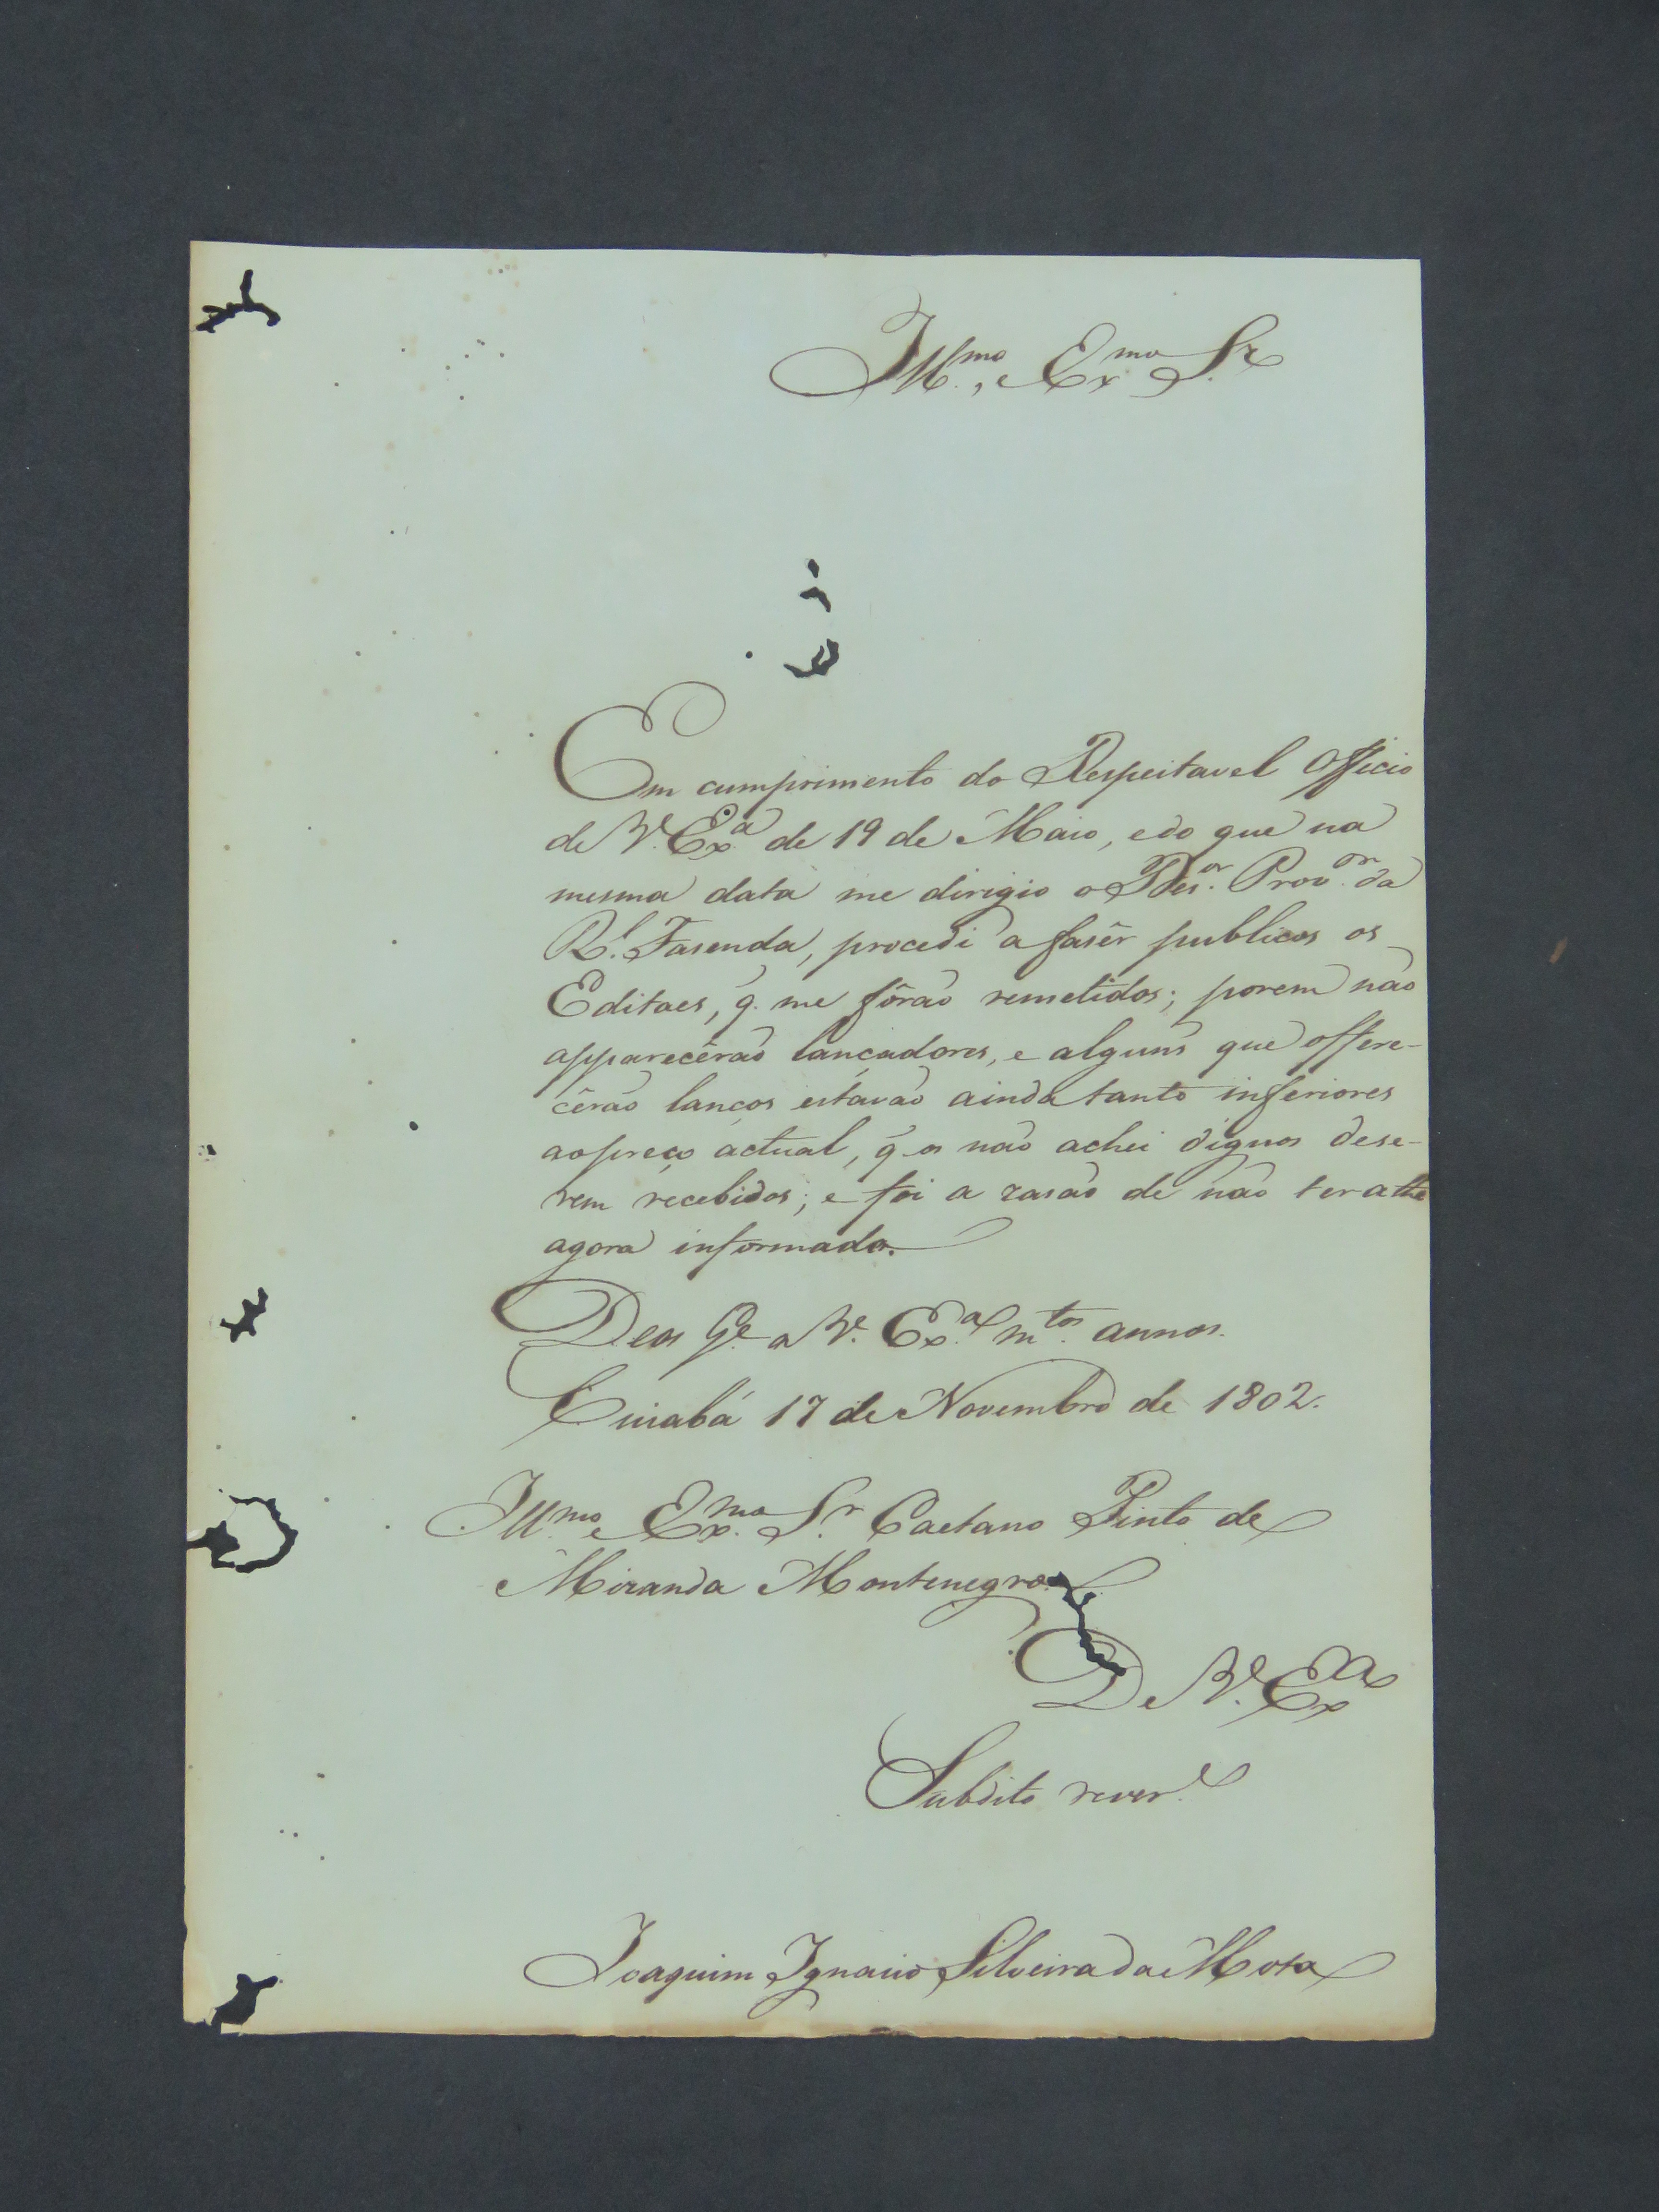 Ill.mo, e Ex.mo S.r
Em cumprimento do Respeitavel Officio
de V. Ex.a de 19 de Maio, edo que na
mesma data me dirigio o Des.or Prov.or da
R.l Fasenda, procedi a fasêr publicos os
Editaes, q̃. me fôraõ remetidos; porem naõ
apparecêraõ lançadores, e alguns que offere-
cêraõ lanços estavaõ ainda tanto inferiores
aopreço actual, q̃ os naõ achei dignos dese-
rem recebidos; e foi a rasaõ de naõ ter athe
agora informado.
Deos G.e a V. Ex.a m.tos annos.
Cuiabá 17 de Novembro de 1802.
Ill.mo e Ex.mo S.r Caetano Pinto de
Miranda Montenegro.
De V. Ex.a
Subdito rever.e
Joaquim Ignacio Silveira da Mota